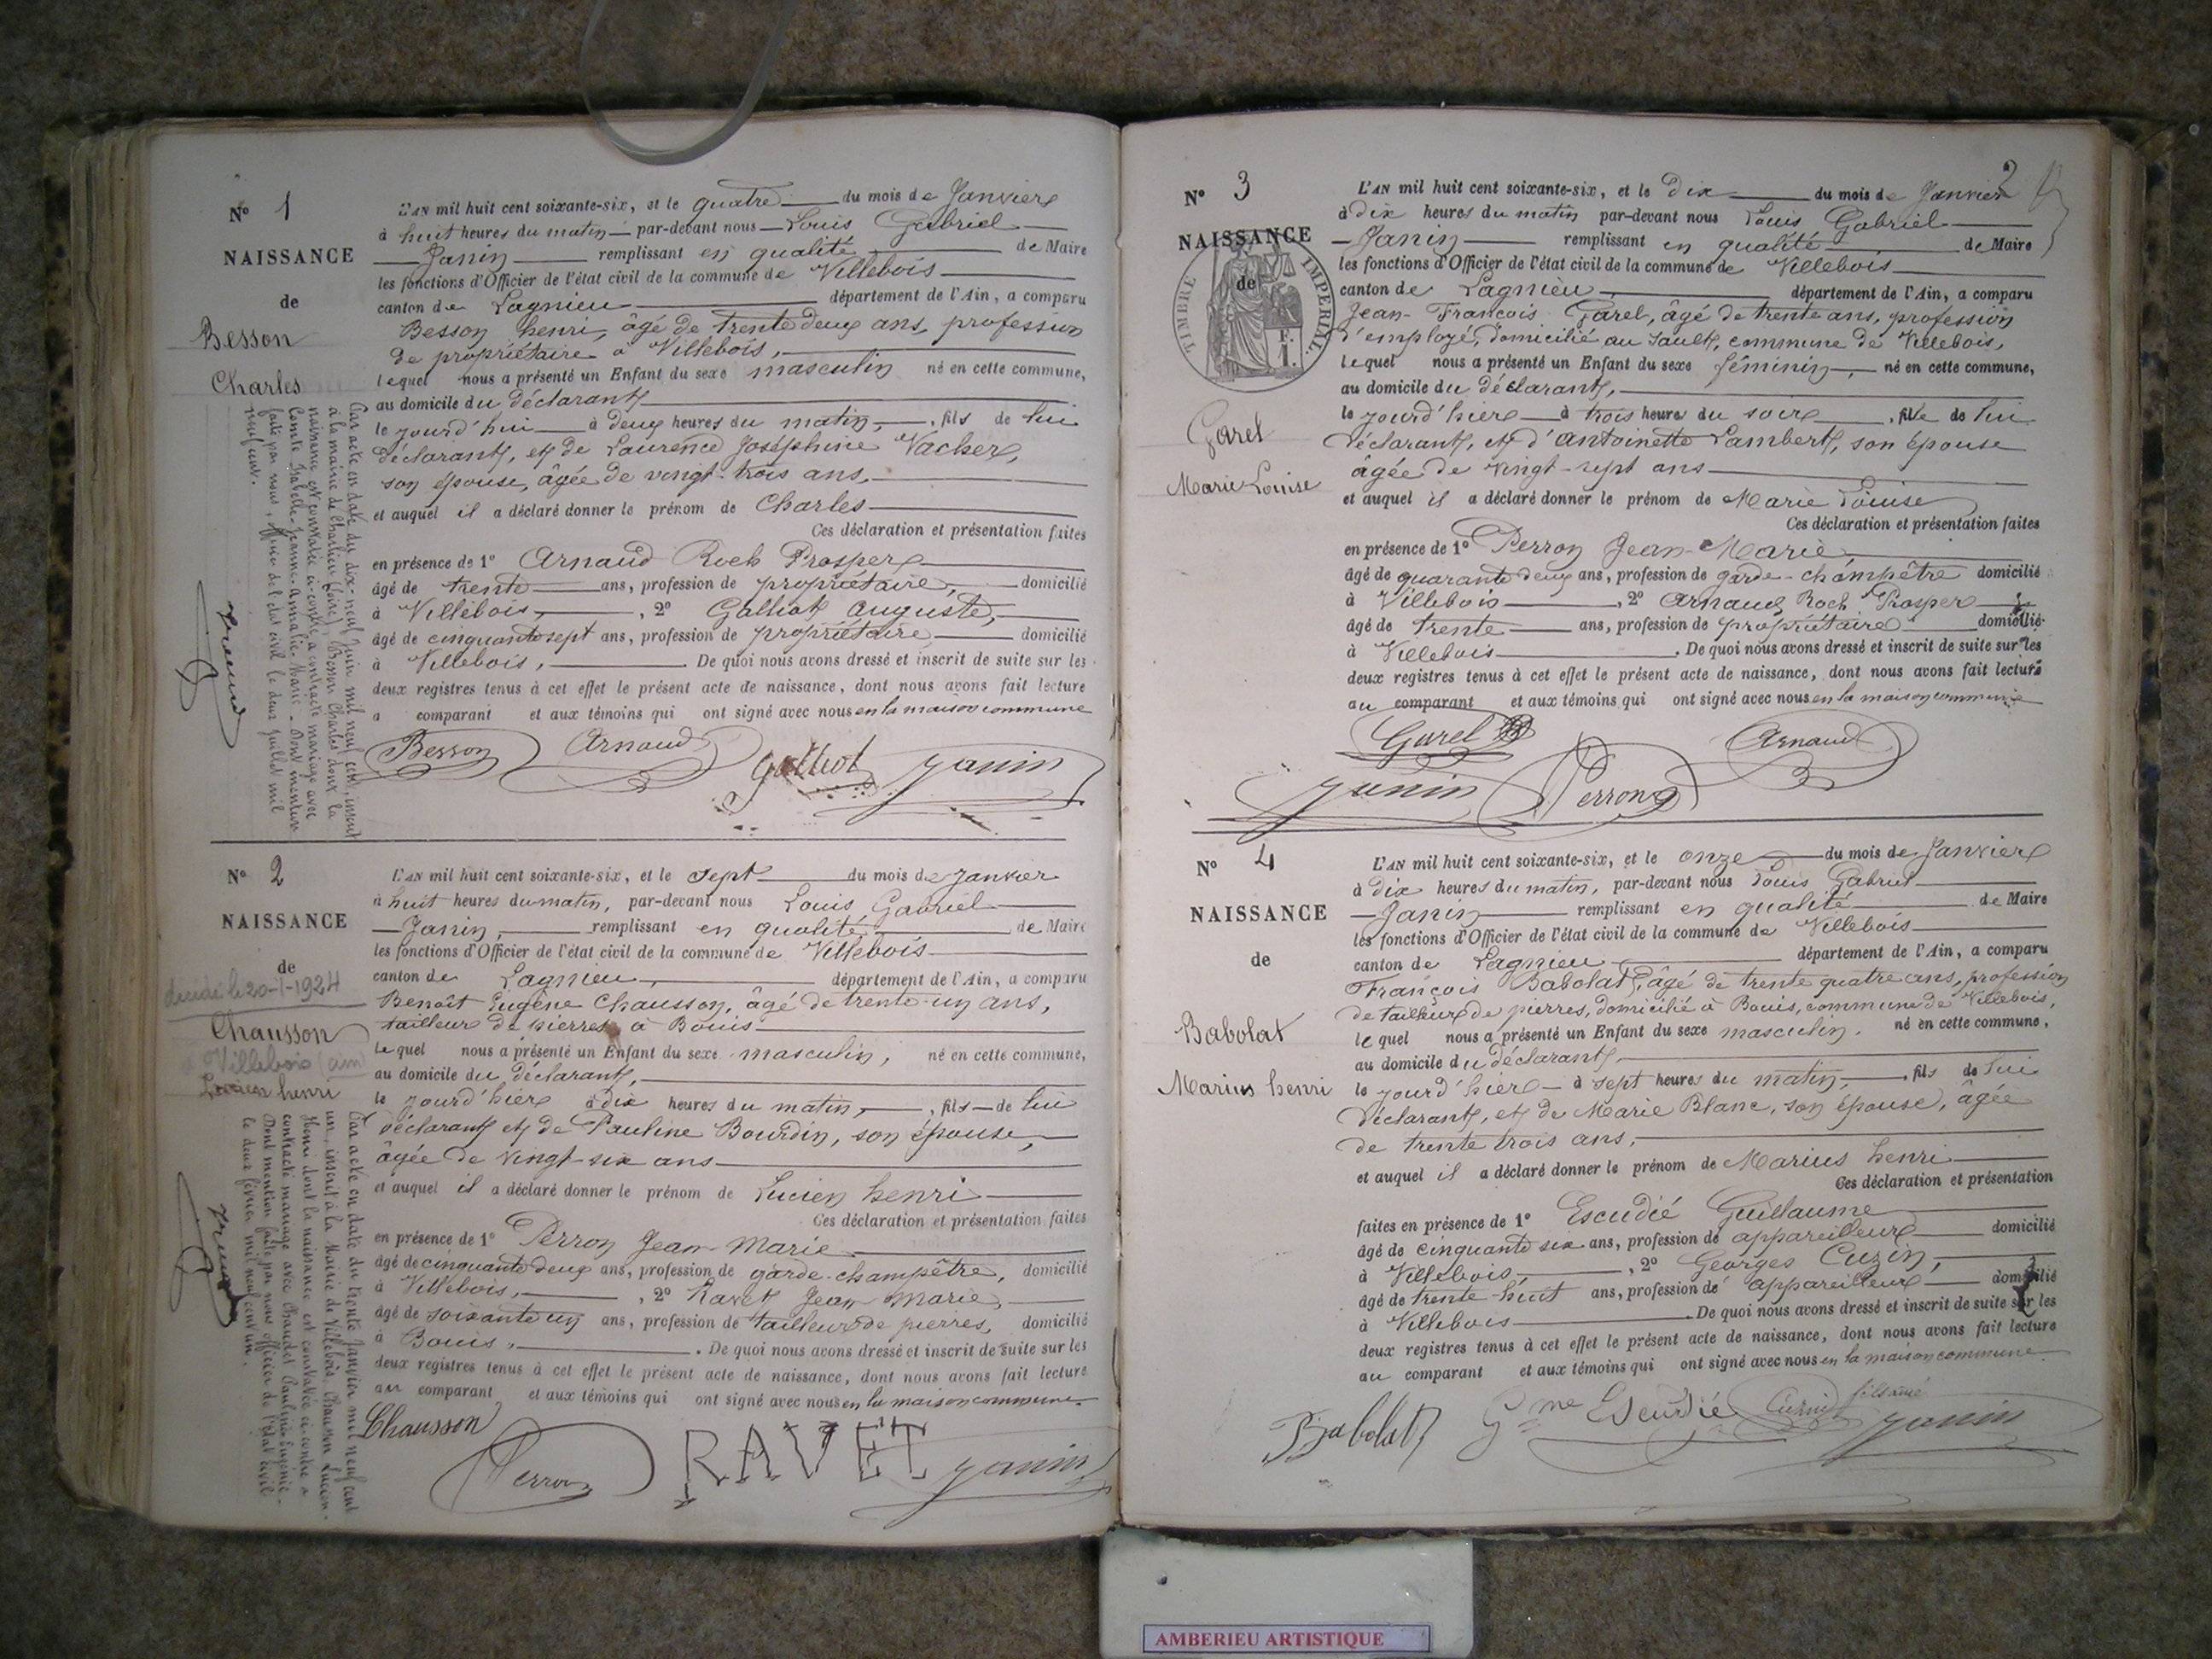 N° 1
NAISSANCE
de
Besson
Charles
L'AN mil huit cent soixante-six, et le quatre du mois de Janvier
à huit heures du matin par-devant nous Louis Gabriel
Janin remplissant en qualité de Maire
les fonctions d'Officier de l'état civil de la commune de Villebois
canton de Lagnieu département de l'Ain, a comparu
Besson henri, âgé de trente deux ans, profession
de propriétaire à Villebois,
lequel nous a présenté un Enfant du sexe masculin né en cette commune,
au domicile du déclarant
le jourd'hui à deux heures du matin, fils de lui
déclarant, et de Laurence Joséphine Vacher,
son épouse, âgée de vingt-trois ans,
et auquel il a déclaré donner le prénom de Charles
Ces déclaration et présentation faites
en présence de 1° Arnaud Roch Prosper
âgé de trente ans, profession de propriétaire, domicilié
à Villebois, 2° Galliot auguste,
âgé de cinquante sept ans, profession de propriétaire domicilié
à Villebois, De quoi nous avons dressé et inscrit de suite sur les
deux registres tenus à cet effet le présent acte de naissance, dont nous avons fait lecture
a comparant et aux témoins qui ont signé avec nous en la maison commune
Besson Arnaud Galliot Janin
Par acte en date du dix-neuf juin mil neuf cent, inscrit
à la mairie de Charlieu (Loire), Besson Charles dont la
naissance est constatée ci-contre a contracté mariage avec
Comte Isabelle-Jeanne-Amalie-Marie. Dont mention
faite par nous, officier de l'état civil le deux juillet mil
neuf cent.
N° 2
NAISSANCE
de
décédé le 20-1-1924
Chausson
à Villebois (ain)
Lucien henri
L'AN mil huit cent soixante-six, et le sept du mois de Janvier
à huit heures du matin, par-devant nous Louis Gabriel
Janin, remplissant en qualité de Maire
les fonctions d'Officier de l'état civil de la commune de Villebois
canton de Lagnieu, département de l'Ain, a comparu
Benoît Eugène Chausson, âgé de trente-un ans,
tailleur de pierres à Bouis
lequel nous a présenté un Enfant du sexe masculin, né en cette commune,
au domicile du déclarant,
le jourd'hier à dix heures du matin, fils de lui
déclarant et de Pauline Bourdin, son épouse,
âgée de vingt-six ans
et auquel il a déclaré donner le prénom de Lucien henri
Ces déclaration et présentation faites
en présence de 1° Perron Jean-Marie
âgé de cinquante deux ans, profession de garde-champêtre, domicilié
à Villebois, 2° Ravet Jean Marie,
âgé de soixante un ans, profession de tailleur de pierres, domicilié
à Bouis, De quoi nous avons dressé et inscrit de suite sur les
deux registres tenus à cet effet le présent acte de naissance, dont nous avons fait lecture
au comparant et aux témoins qui ont signé avec nous en la maison commune.
Chausson Perron RAVET Janin
Par acte en date du trente Janvier mil neuf cent
un, inscrit à la Mairie de Villebois, Chausson Lucien-
Henri dont la naissance est constatée ci-contre a
contracté mariage avec Chaudet Pauline-Eugénie.
Dont mention faite par nous officier de l'état civil
le deux février mil neuf cent un.
2
N° 3
NAISSANCE
de
TIMBRE IMPERIAL
Garel
Marie Louise
L'AN mil huit cent soixante-six, et le Dix du mois de Janvier
à dix heures du matin par-devant nous Louis Gabriel
Janin remplissant en qualité de Maire
les fonctions d'Officier de l'état civil de la commune de Villebois
canton de Lagnieu, département de l'Ain, a comparu
Jean-François Garel, âgé de trente ans, profession
d'employé, domicilié au Sault, commune de Villebois,
lequel nous a présenté un Enfant du sexe féminin, né en cette commune,
au domicile du déclarant,
le jourd'hier à trois heures du soir, fille de lui
déclarant, et d'antoinette Lambert, son épouse
âgée de vingt-sept ans
et auquel il a déclaré donner le prénom de Marie Louise
Ces déclaration et présentation faites
en présence de 1° Perron Jean-Marie
âgé de quarante deux ans, profession de garde-champêtre domicilié
à Villebois, 2° Arnaud Roch Prosper
âgé de trente ans, profession de propriétaire domicilié
à Villebois. De quoi nous avons dressé et inscrit de suite sur les
deux registres tenus à cet effet le présent acte de naissance, dont nous avons fait lecture
au comparant et aux témoins qui ont signé avec nous en la maison commune
Garel Arnaud
Janin Perron
N° 4
NAISSANCE
de
Babolat
Marius henri
L'AN mil huit cent soixante-six, et le onze du mois de Janvier
à dix heures du matin, par-devant nous Louis Gabriel
Janin remplissant en qualité de Maire
les fonctions d'Officier de l'état civil de la commune de Villebois
canton de Lagnieu département de l'Ain, a comparu
François Babolat, âgé de trente quatre ans, profession
de tailleur de pierres, domicilié à Bouis, commune de Villebois,
lequel nous a présenté un Enfant du sexe masculin. né en cette commune,
au domicile du déclarant,
le jourd'hier à sept heures du matin, fils de lui
déclarant, et de Marie Blanc, son épouse, âgée
de trente trois ans,
et auquel il a déclaré donner le prénom de Marius henri
Ces déclaration et présentation
faites en présence de 1° Escudié Guillaume
âgé de cinquante six ans, profession de appareilleur domicilié
à Villebois, 2° Georges Cuzin,
âgé de trente-huit ans, profession de appareilleur domicilié
à Villebois. De quoi nous avons dressé et inscrit de suite sur les
deux registres tenus à cet effet le présent acte de naissance, dont nous avons fait lecture
au comparant et aux témoins qui ont signé avec nous en la maison commune
Babolat Gme Escudié Cuzin fils ainé Janin
AMBERIEU ARTISTIQUE